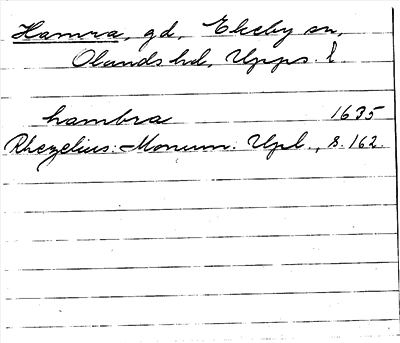 Hamra, gd, Ekeby sn,
Olands hd, Upps. l.
hambra 1635
Rhezelius: Monum. Upl., s. 162.